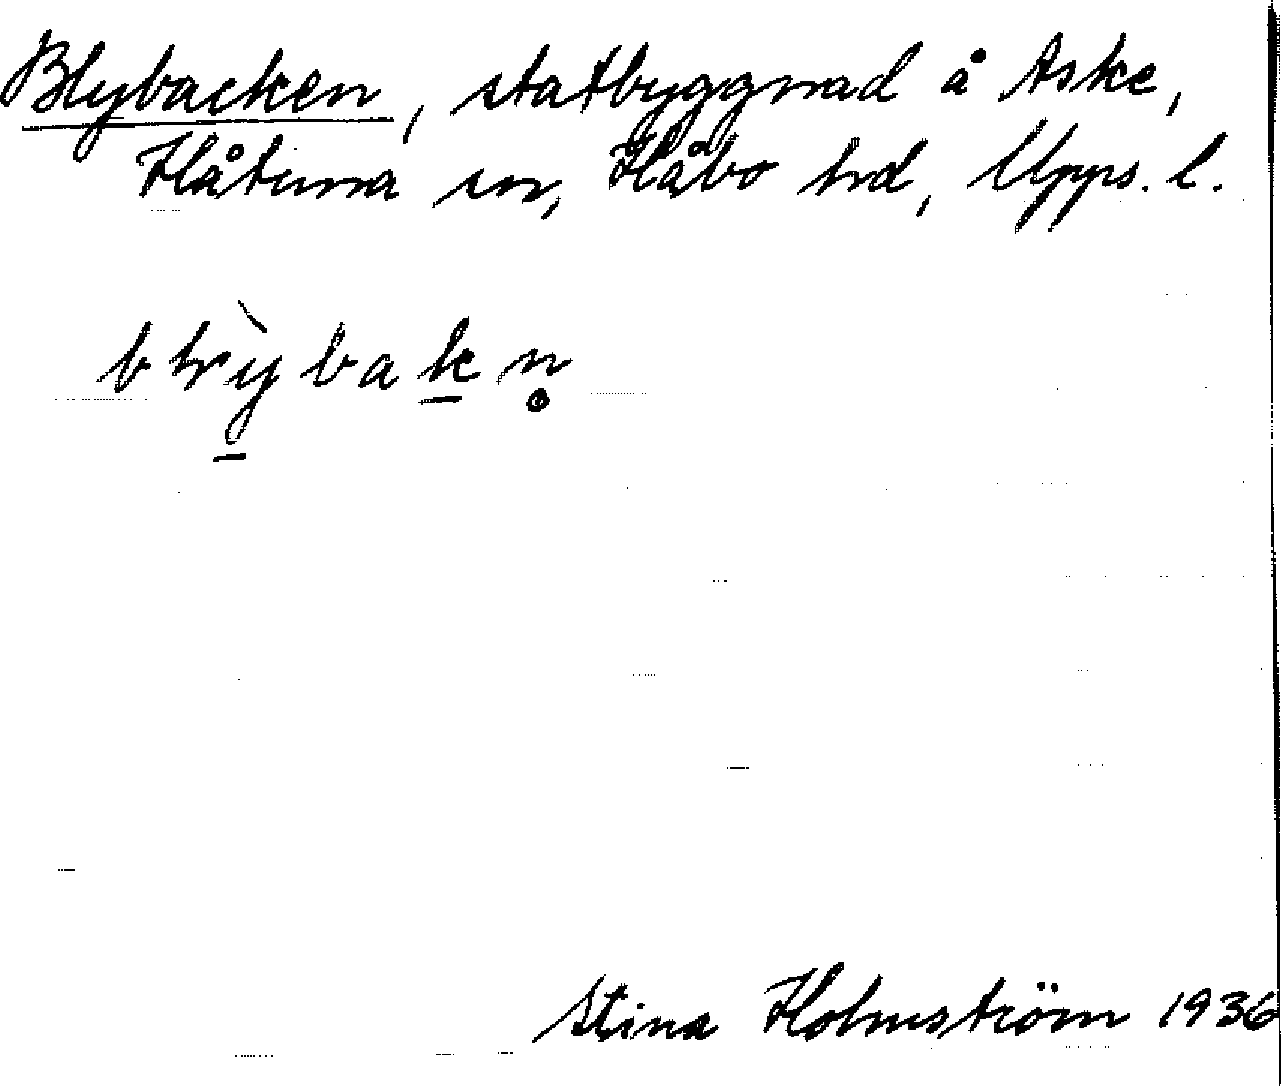 Blybacken, statbyggnad å Aske,
Håtuna sn, Håbo hrd, Upps. l.
blỳ̱baḵn̥
Stina Holmström 1936